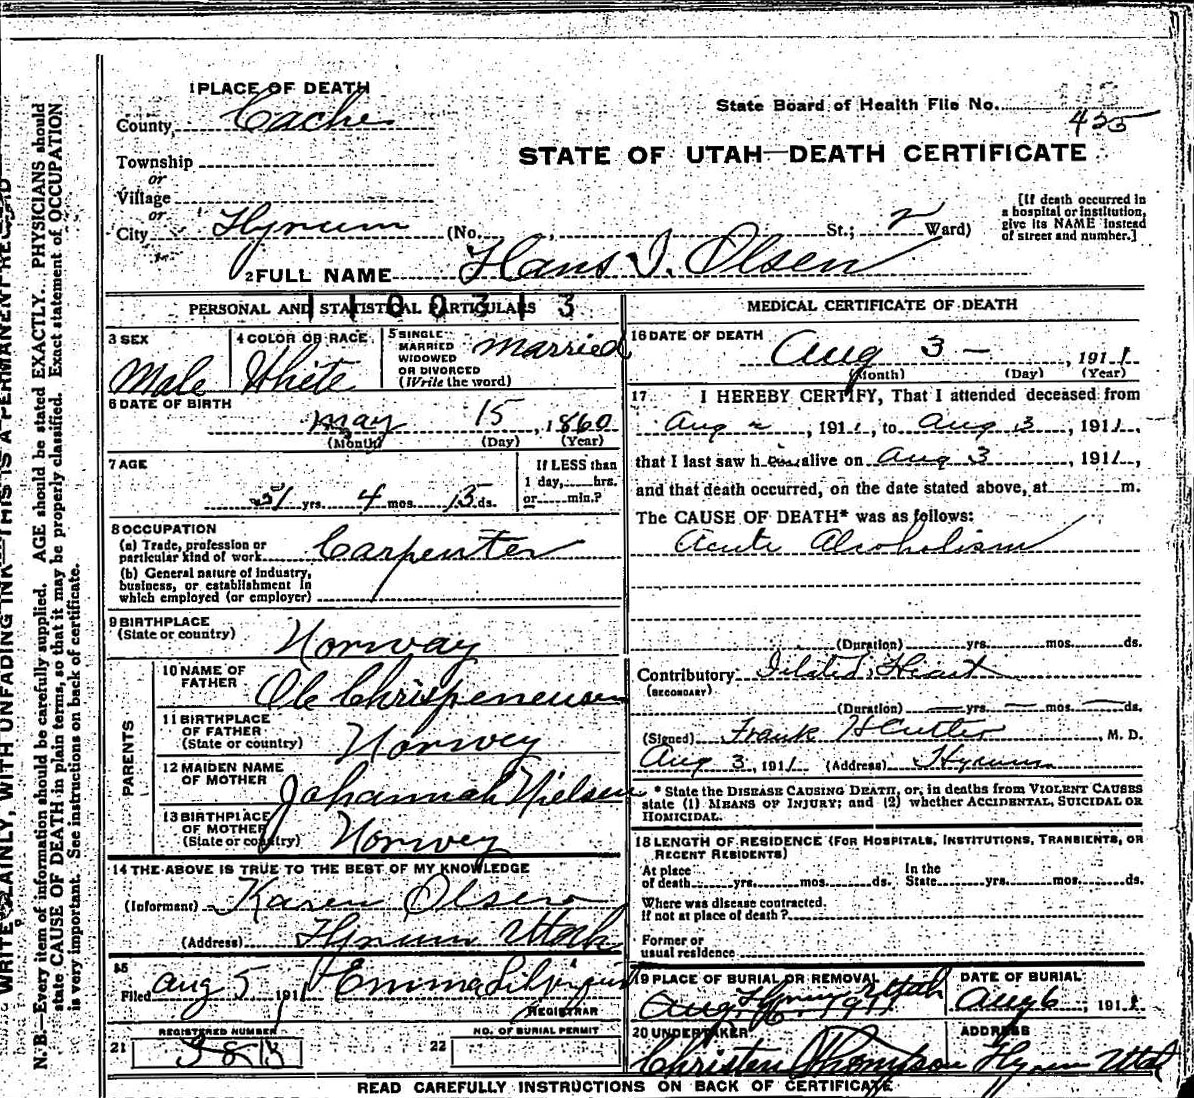 WRITE PLAINLY, WITH UNFADING INK—THIS IS A PERMANENT RECORD
N. B.—Every item of information should be carefully supplied. AGE should be stated EXACTLY. PHYSICIANS should
state CAUSE OF DEATH in plain terms, so that it may be properly classified. Exact statement of OCCUPATION
is very important. See instructions on back of certificate.
1 PLACE OF DEATH
County Cache
State Board of Health File No.
435
Township
or
Village
or
City Hyrum
STATE OF UTAH—DEATH CERTIFICATE
(No. , St.; 2 Ward)
[If death occurred in
a hospital or institution,
give its NAME instead
of street and number.]
2 FULL NAME Hans I. Olsen
PERSONAL AND STATISTICAL PARTICULARS
1100313
3 SEX
Male
4 COLOR OR RACE
White
5 SINGLE
MARRIED
WIDOWED
OR DIVORCED
(Write the word)
Married
6 DATE OF BIRTH
May 15, 1860
(Month) (Day) (Year)
7 AGE
51 yrs. 4 mos. 15 ds.
If LESS than
1 day, hrs.
or min.?
8 OCCUPATION
(a) Trade, profession or
particular kind of work Carpenter
(b) General nature of industry,
business, or establishment in
which employed (or employer)
9 BIRTHPLACE
(State or country) Norway
PARENTS
10 NAME OF
FATHER Ole
11 BIRTHPLACE
OF FATHER
(State or country) Norwey
12 MAIDEN NAME
OF MOTHER Johannah Nielsen
13 BIRTHPLACE
OF MOTHER
(State or country) Norwey
14 THE ABOVE IS TRUE TO THE BEST OF MY KNOWLEDGE
(Informant) Karen Olsen
(Address) Hyrum Utah
15
Filed Aug 5, 1911 Emma
REGISTRAR
REGISTERED NUMBER
21
NO. OF BURIAL PERMIT
22
MEDICAL CERTIFICATE OF DEATH
16 DATE OF DEATH
Aug 3 —, 1911
(Month) (Day) (Year)
17 I HEREBY CERTIFY, That I attended deceased from
Aug 2, 1911, to Aug 3, 1911,
that I last saw him alive on Aug 3, 1911,
and that death occurred, on the date stated above, at m.
The CAUSE OF DEATH* was as follows:
Acute Alcoholism
(Duration) yrs. mos. ds.
Contributory Dilated Heart
(SECONDARY)
(Duration) — yrs. — mos. — ds.
(Signed) Frank H Cutler, M. D.
Aug 3, 1911 (Address) Hyrum
* State the DISEASE CAUSING DEATH, or, in deaths from VIOLENT CAUSES
state (1) MEANS OF INJURY; and (2) whether ACCIDENTAL, SUICIDAL OR
HOMICIDAL.
18 LENGTH OF RESIDENCE (FOR HOSPITALS, INSTITUTIONS, TRANSIENTS, OR
RECENT RESIDENTS)
At place
of death yrs. mos. ds.
In the
State yrs. mos. ds.
Where was disease contracted.
If not at place of death?
Former or
usual residence
19 PLACE OF BURIAL OR REMOVAL
Hyrum Utah
DATE OF BURIAL
Aug 6, 1911
20 UNDERTAKER
Christen Thompson
ADDRESS
Hyrum Utah
READ CAREFULLY INSTRUCTIONS ON BACK OF CERTIFICATE